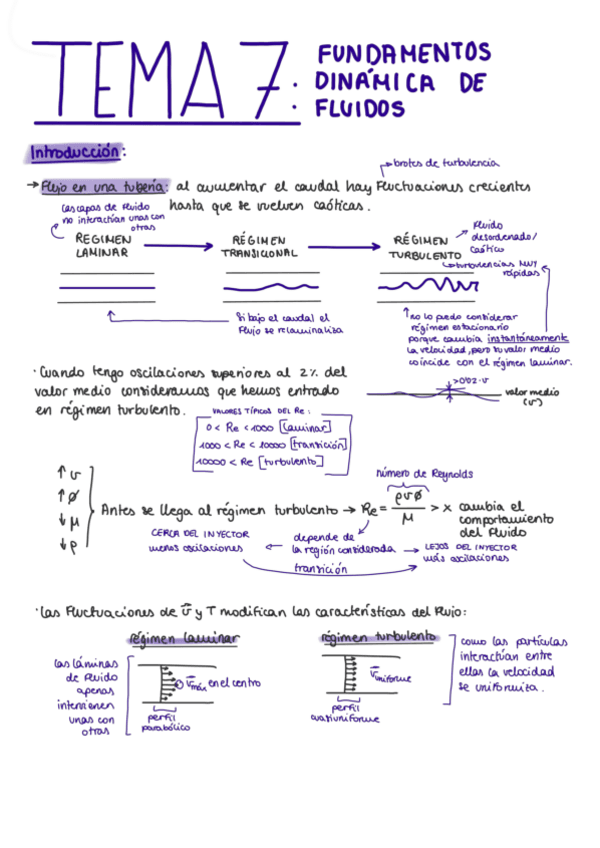 TEMA 7:
FUNDAMENTOS
DINÁMICA DE
FLUIDOS
Introducción:
brotes de turbulencia
→ Flujo en una tubería: al aumentar el caudal hay fluctuaciones crecientes
hasta que se vuelven caóticas.
las capas de fluido
no interactúan unas con
otras
RÉGIMEN
LAMINAR
RÉGIMEN
TRANSICIONAL
RÉGIMEN
TURBULENTO
Fluido
desordenado/
caótico
turbulencias MUY
rápidas
Si bajo el caudal el
flujo se relaminaliza
no lo puedo considerar
régimen estacionario
porque cambia instantáneamente
la velocidad, pero su valor medio
coincide con el régimen laminar.
· Cuando tengo oscilaciones superiores al 2% del
valor medio consideramos que hemos entrado
en régimen turbulento.
>0'02·v
valor medio
(v)
VALORES TÍPICOS DEL Re:
0 < Re < 1000 [laminar]
1000 < Re < 10000 [transición]
10000 < Re [turbulento]
↑ v
↑ ø
↓ μ
↓ ρ
Antes se llega al régimen turbulento → Re = ρvø / μ > x cambia el
comportamiento
del fluido
número de Reynolds
depende de
la región considerada
CERCA DEL INYECTOR
menos oscilaciones
LEJOS DEL INYECTOR
más oscilaciones
transición
· Las fluctuaciones de v̄ y T modifican las características del flujo:
régimen laminar
las láminas
de fluido
apenas
intervienen
unas con
otras
v̄máx en el centro
perfil
parabólico
régimen turbulento
v̄uniforme
perfil
cuasiuniforme
como las partículas
interactúan entre
ellas la velocidad
se uniformiza.